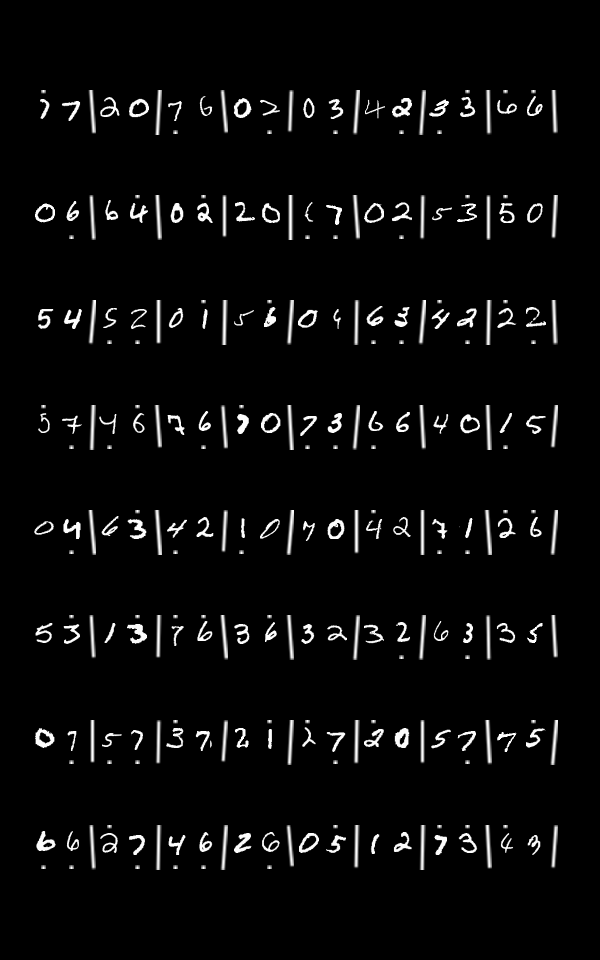 7 7 | 2 0 | 7 6 | 0 2 | 0 3 | 4 2 | 3 3 | 6 6 |
0 6 | 6 4 | 0 2 | 2 0 | 7 | 0 2 | 5 3 | 5 0 |
5 4 | 5 2 | 0 1 | 5 6 | 0 4 | 6 3 | 4 2 | 2 2 |
5 7 | 4 6 | 7 6 | 7 0 | 7 3 | 6 6 | 4 0 | 1 5 |
0 4 | 6 3 | 4 2 | 1 0 | 7 0 | 4 2 | 7 1 | 2 6 |
5 3 | 1 3 | 7 6 | 3 6 | 3 2 | 3 2 | 6 3 | 3 5 |
0 7 | 5 7 | 3 7 | 2 1 | 2 7 | 2 0 | 5 7 | 7 5 |
6 6 | 2 7 | 4 6 | 2 6 | 0 5 | 1 2 | 7 3 | 4 3 |